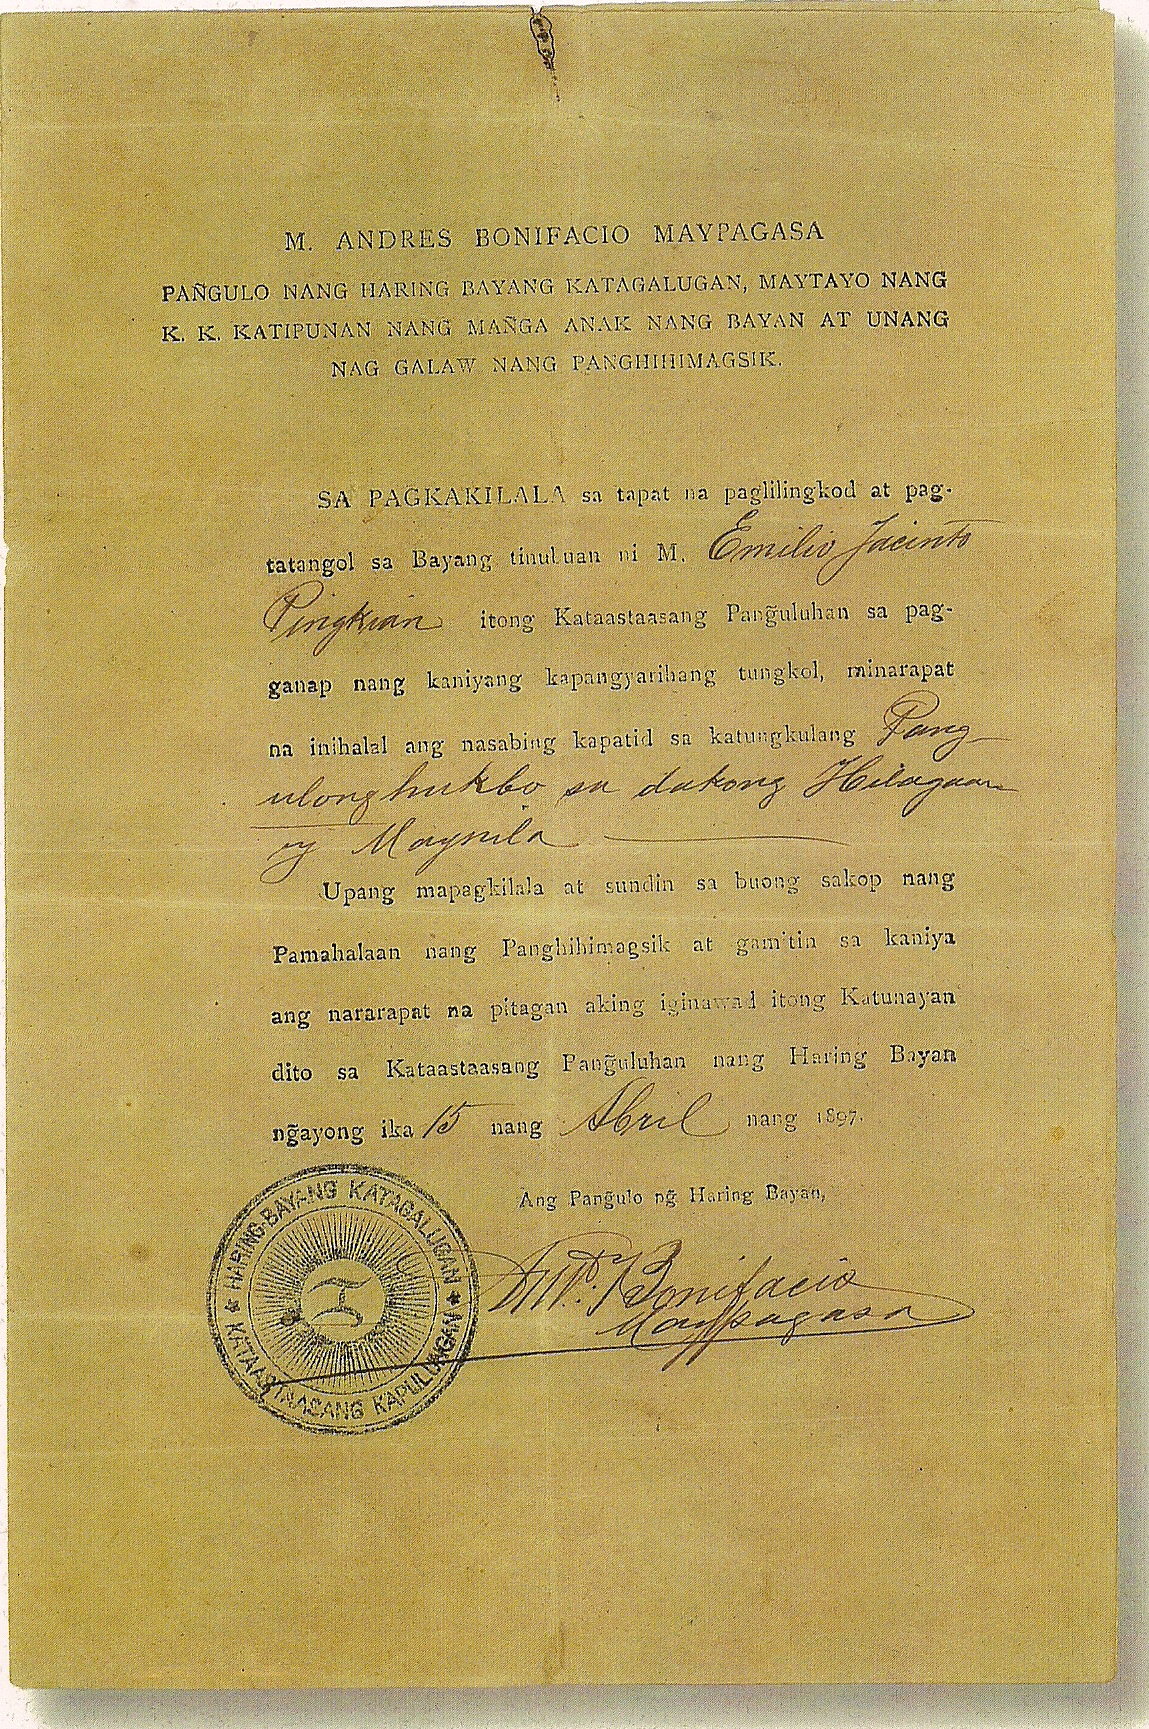 M. ANDRES BONIFACIO MAYPAGASA
PAÑGULO NANG HARING BAYANG KATAGALUGAN, MAYTAYO NANG
K. K. KATIPUNAN NANG MAÑGA ANAK NANG BAYAN AT UNANG
NAG GALAW NANG PANGHIHIMAGSIK.
SA PAGKAKILALA sa tapat na paglilingkod at pag-
tatangol sa Bayang tinubuan ni M. Emilio Jacinto
Pingkian itong Kataastaasang Pang̃uluhan sa pag-
ganap nang kaniyang kapangyarihang tungkol, minarapat
na inihalal ang nasabing kapatid sa katungkulang Pang-
ulong hukbo sa dakong Hilagaan
ng Maynila
Upang mapagkilala at sundin sa buong sakop nang
Pamahalaan nang Panghihimagsik at gam'tin sa kaniya
ang nararapat na pitagan aking iginawad itong Katunayan
dito sa Kataastaasang Pang̃uluhan nang Haring Bayan
ng̃ayong ika 15 nang Abril nang 1897.
Ang Pang̃ulo ng̃ Haring Bayan,
HARING BAYANG KATAGALUGAN
KATAASTAASANG KAPULUNGAN
Bonifacio
Maypagasa